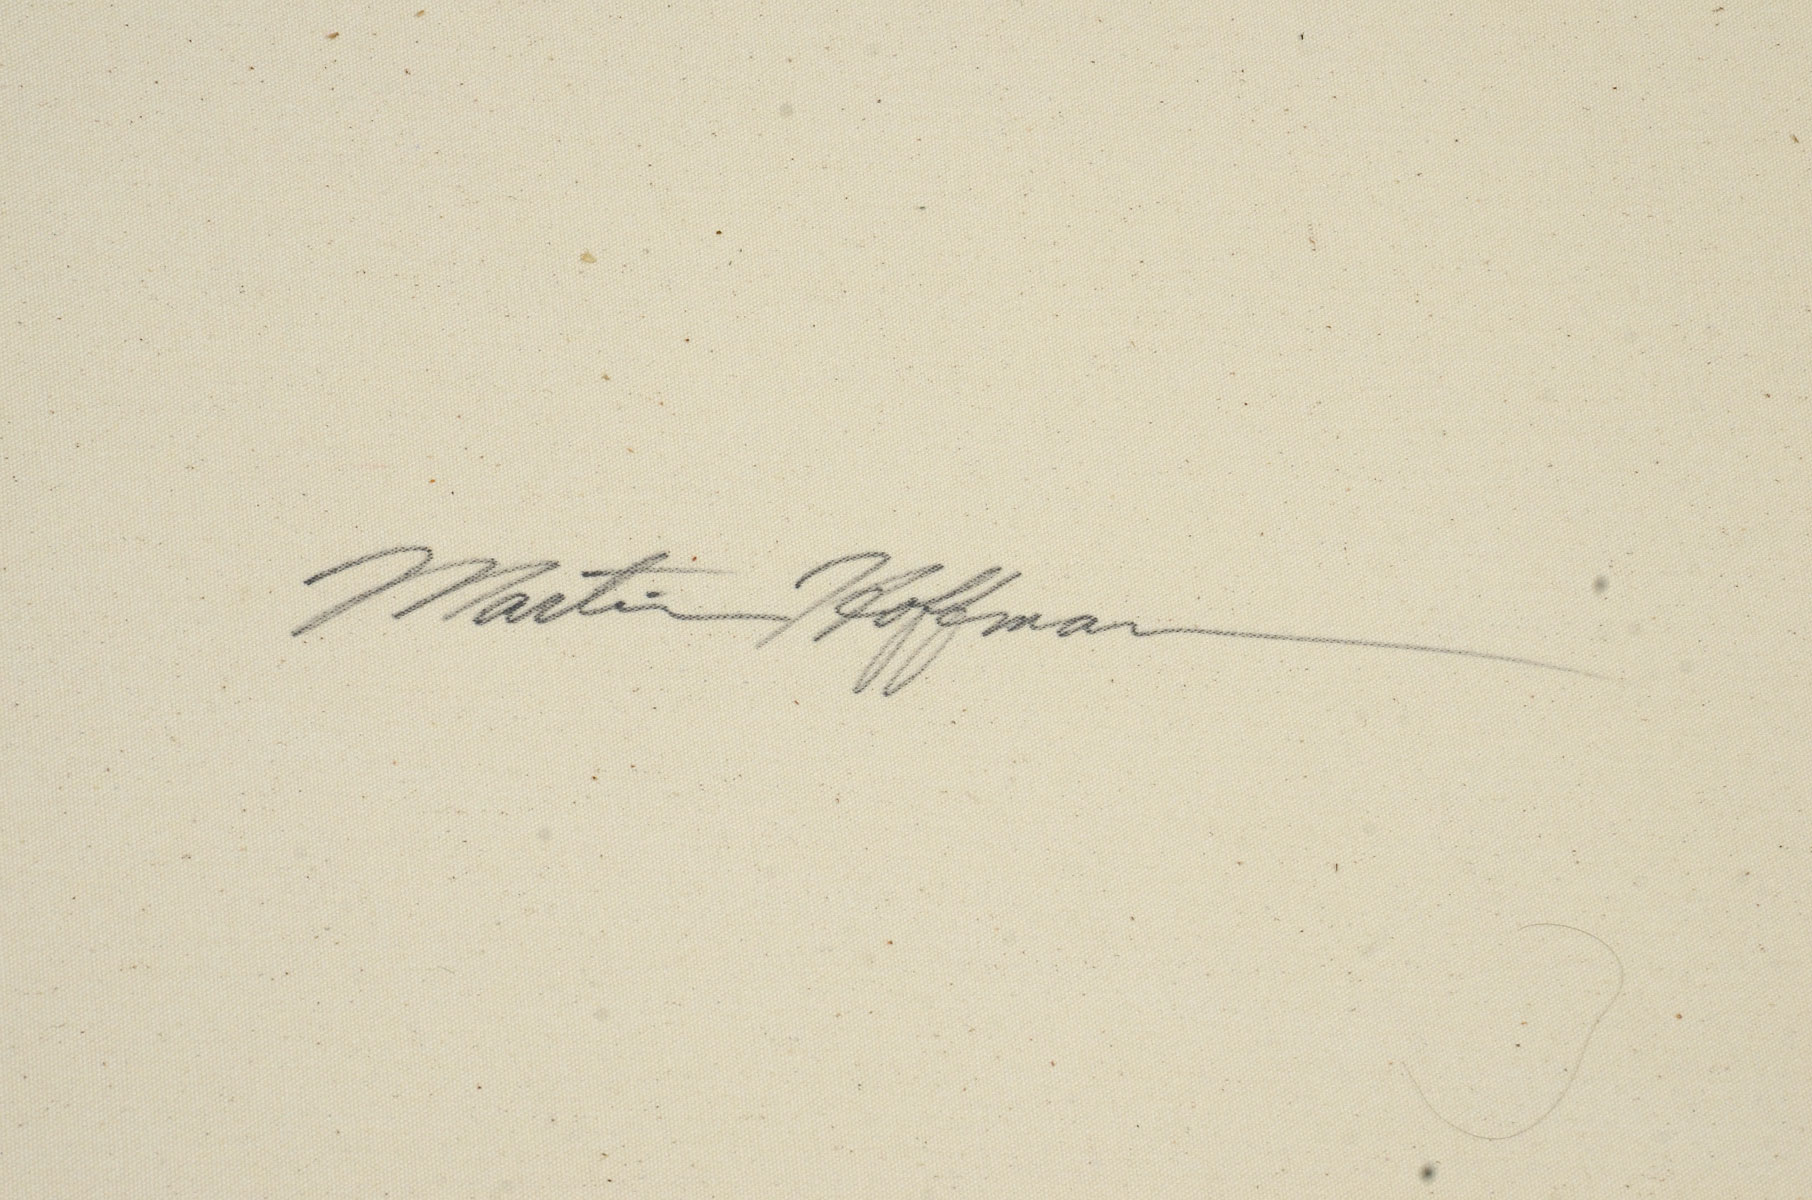 Martin Hoffman